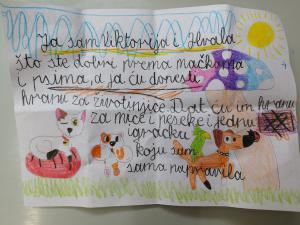 Ja sam Viktorija i Hvala
što ste dobri prema mačkama
i psima, a ja ću donesti
hranu za životinjice. Dat ću im hranu
za mice i peseke i jednu
igračku
koju sam
sama napravila